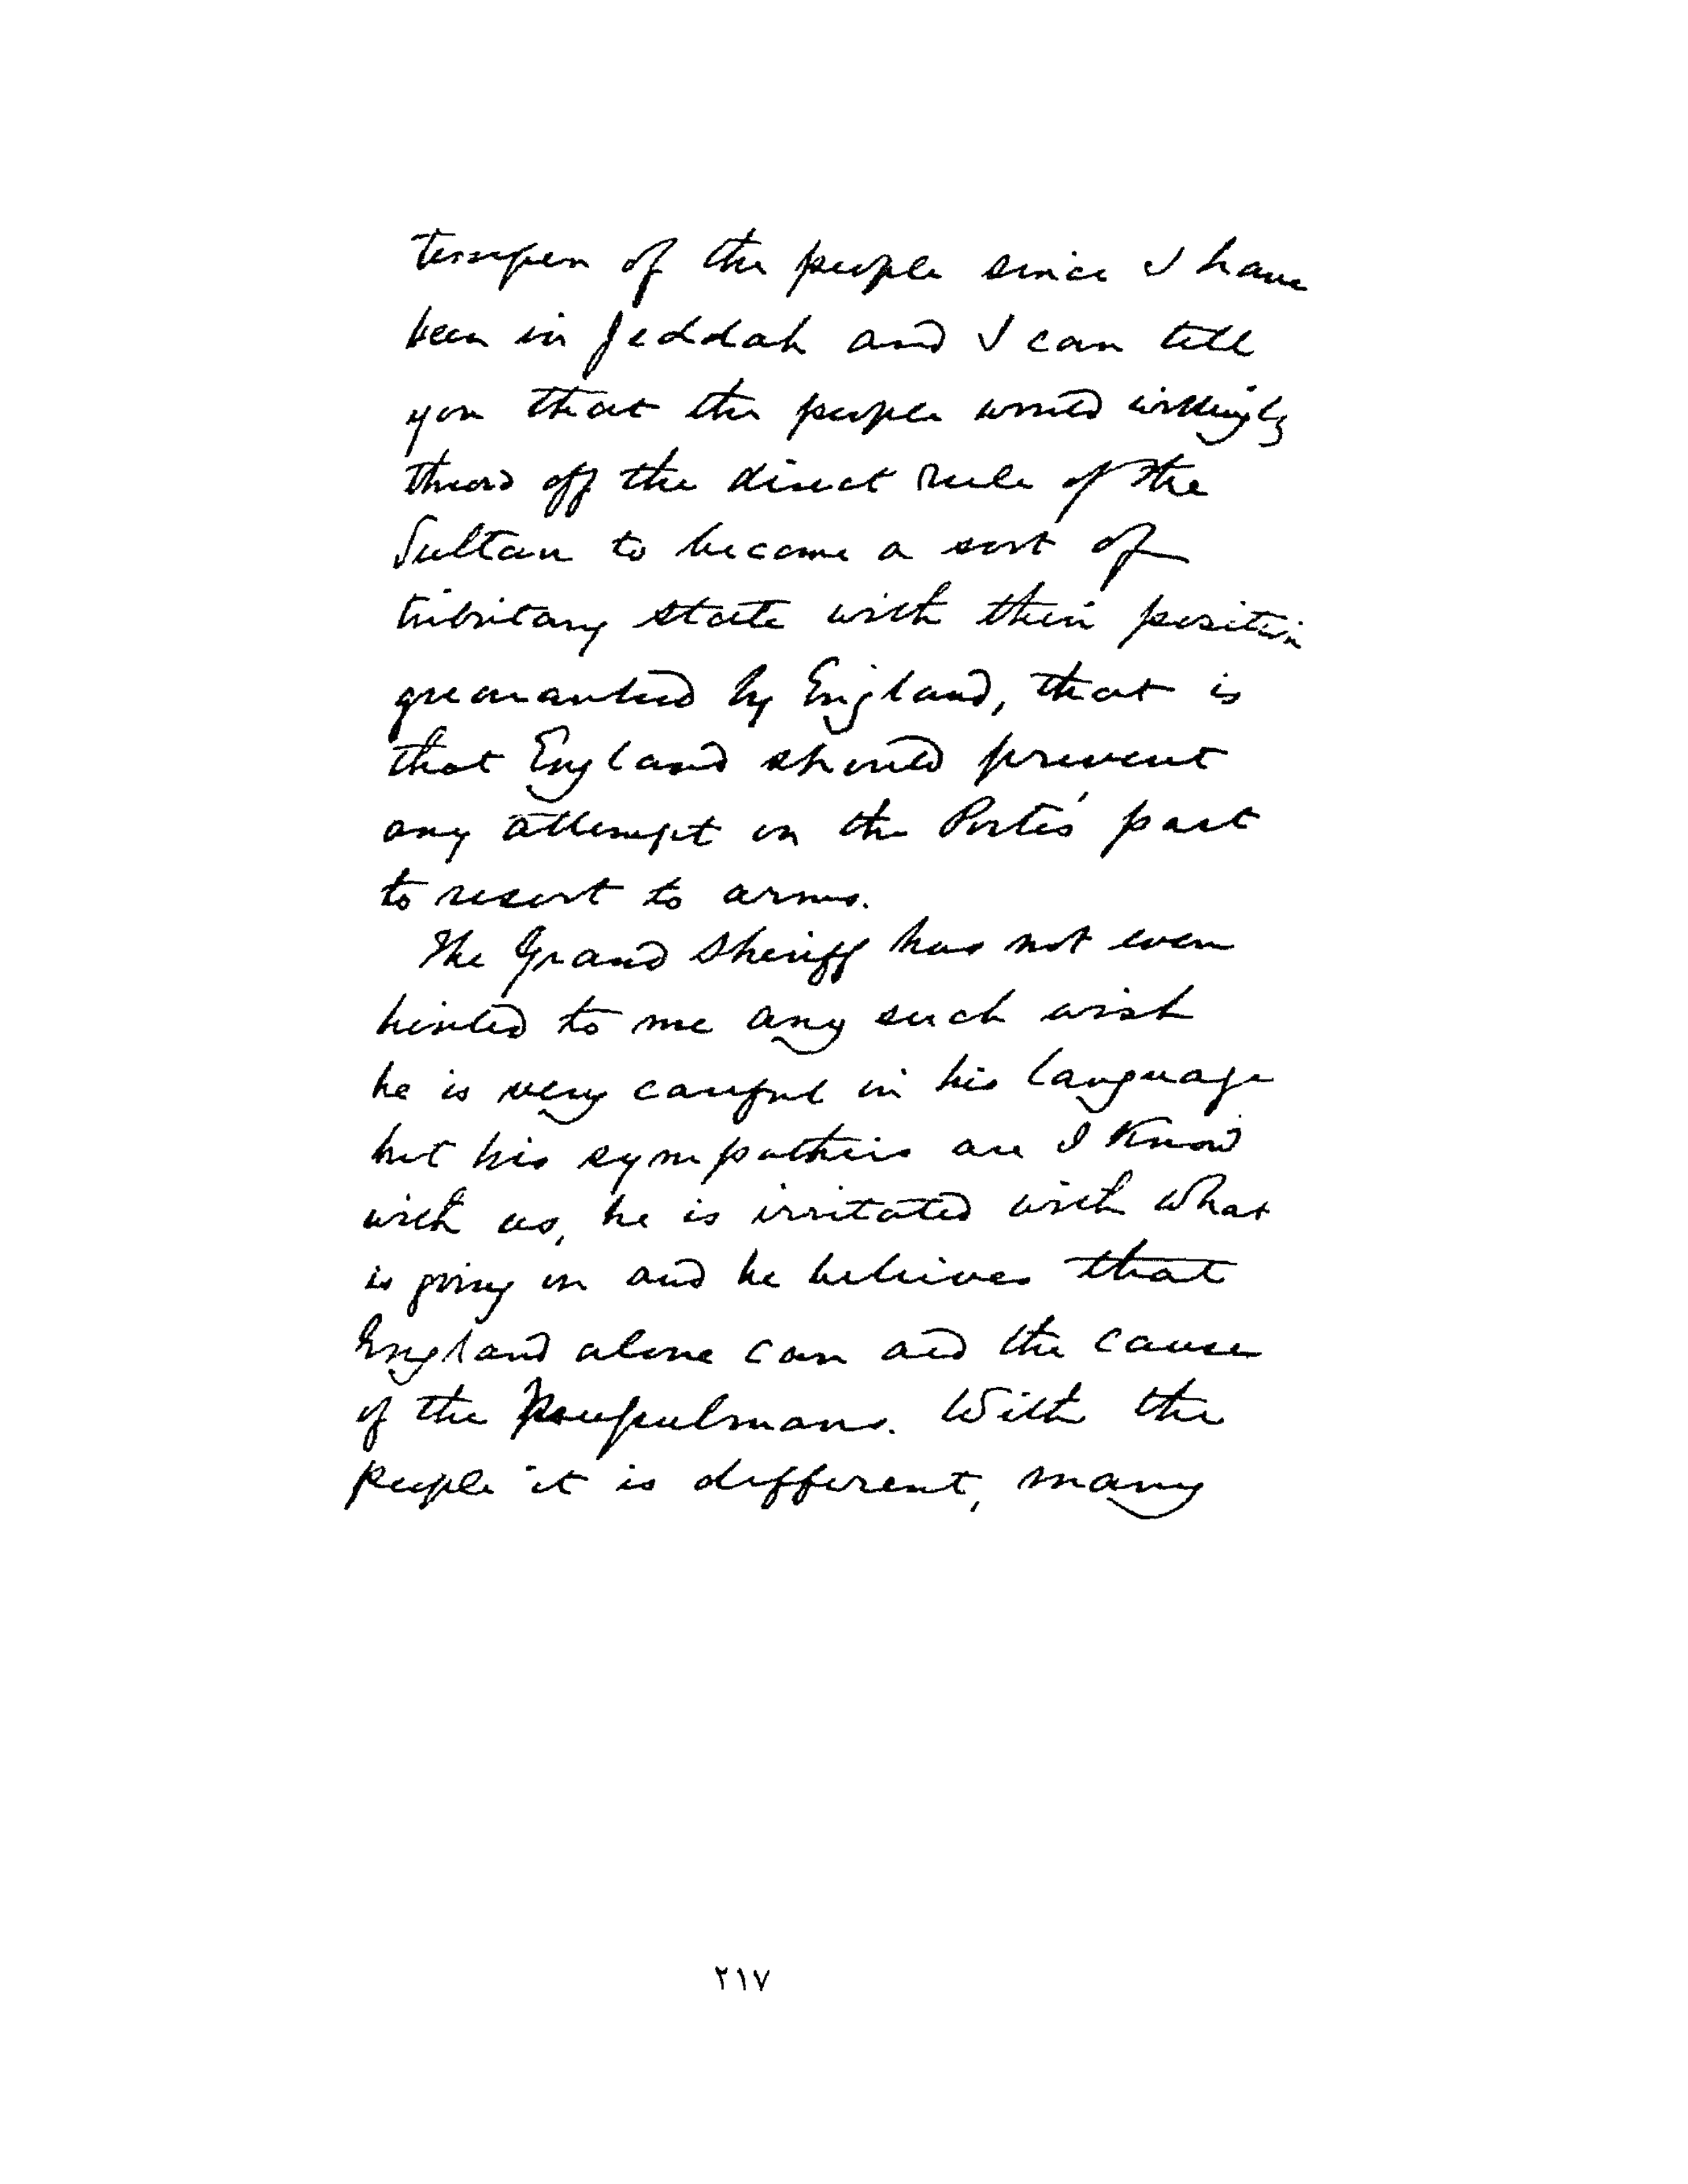 temper of the people since I have
been in Jeddah and I can tell
you that the people would willingly
throw off the direct rule of the
Sultan to become a sort of
tributary state with their position
guaranteed by England, that is
that England should prevent
any attempt on the Porte's part
to resort to arms.
The Grand Sheriff has not even
hinted to me any such wish
he is very careful in his language
but his sympathies are I know
with us, he is irritated with what
is going on and he believes that
England alone can aid the cause
of the With the
people it is different, many
٢١٧